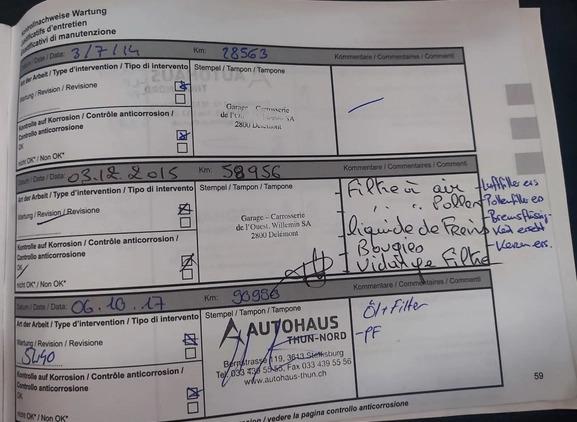 Kontrollnachweise Wartung
Justificatifs d'entretien
Giustificativi di manutenzione
Datum / Date / Data: 3/7/14 Km: 28563 Kommentare / Commentaires / Commenti
Art der Arbeit / Type d'intervention / Tipo di intervento
Stempel / Tampon / Tampone
Wartung / Revision / Revisione
Garage - Carrosserie
de l'Ouest, Willemin SA
2800 Delémont
Kontrolle auf Korrosion / Contrôle anticorrosion /
Controllo anticorrosione
OK
nicht OK* / Non OK*
Datum / Date / Data: 03.12.2015 Km: 58956 Kommentare / Commentaires / Commenti
Art der Arbeit / Type d'intervention / Tipo di intervento
Stempel / Tampon / Tampone
Wartung / Revision / Revisione
Garage - Carrosserie
de l'Ouest, Willemin SA
2800 Delémont
Kontrolle auf Korrosion / Contrôle anticorrosion /
Controllo anticorrosione
OK
nicht OK* / Non OK*
Filtre à air
" " Pollen
liquide de Freins
Bougies
Vidange Filtre
- Luftfilter ers
- Pollenfilter ers
- Bremsflüssig-
- Kerzen ers.
Datum / Date / Data: 06.10.17 Km: 90986 Kommentare / Commentaires / Commenti
Art der Arbeit / Type d'intervention / Tipo di intervento
Stempel / Tampon / Tampone
Wartung / Revision / Revisione
5W40
AUTOHAUS
THUN-NORD
Bernstrasse 119, 3613 Steffisburg
Tel. 033 439 55 55, Fax 033 439 55 56
www.autohaus-thun.ch
Öl + Filter
- PF
Kontrolle auf Korrosion / Contrôle anticorrosion /
Controllo anticorrosione
OK
nicht OK* / Non OK*
59
/ vedere la pagina controllo anticorrosione